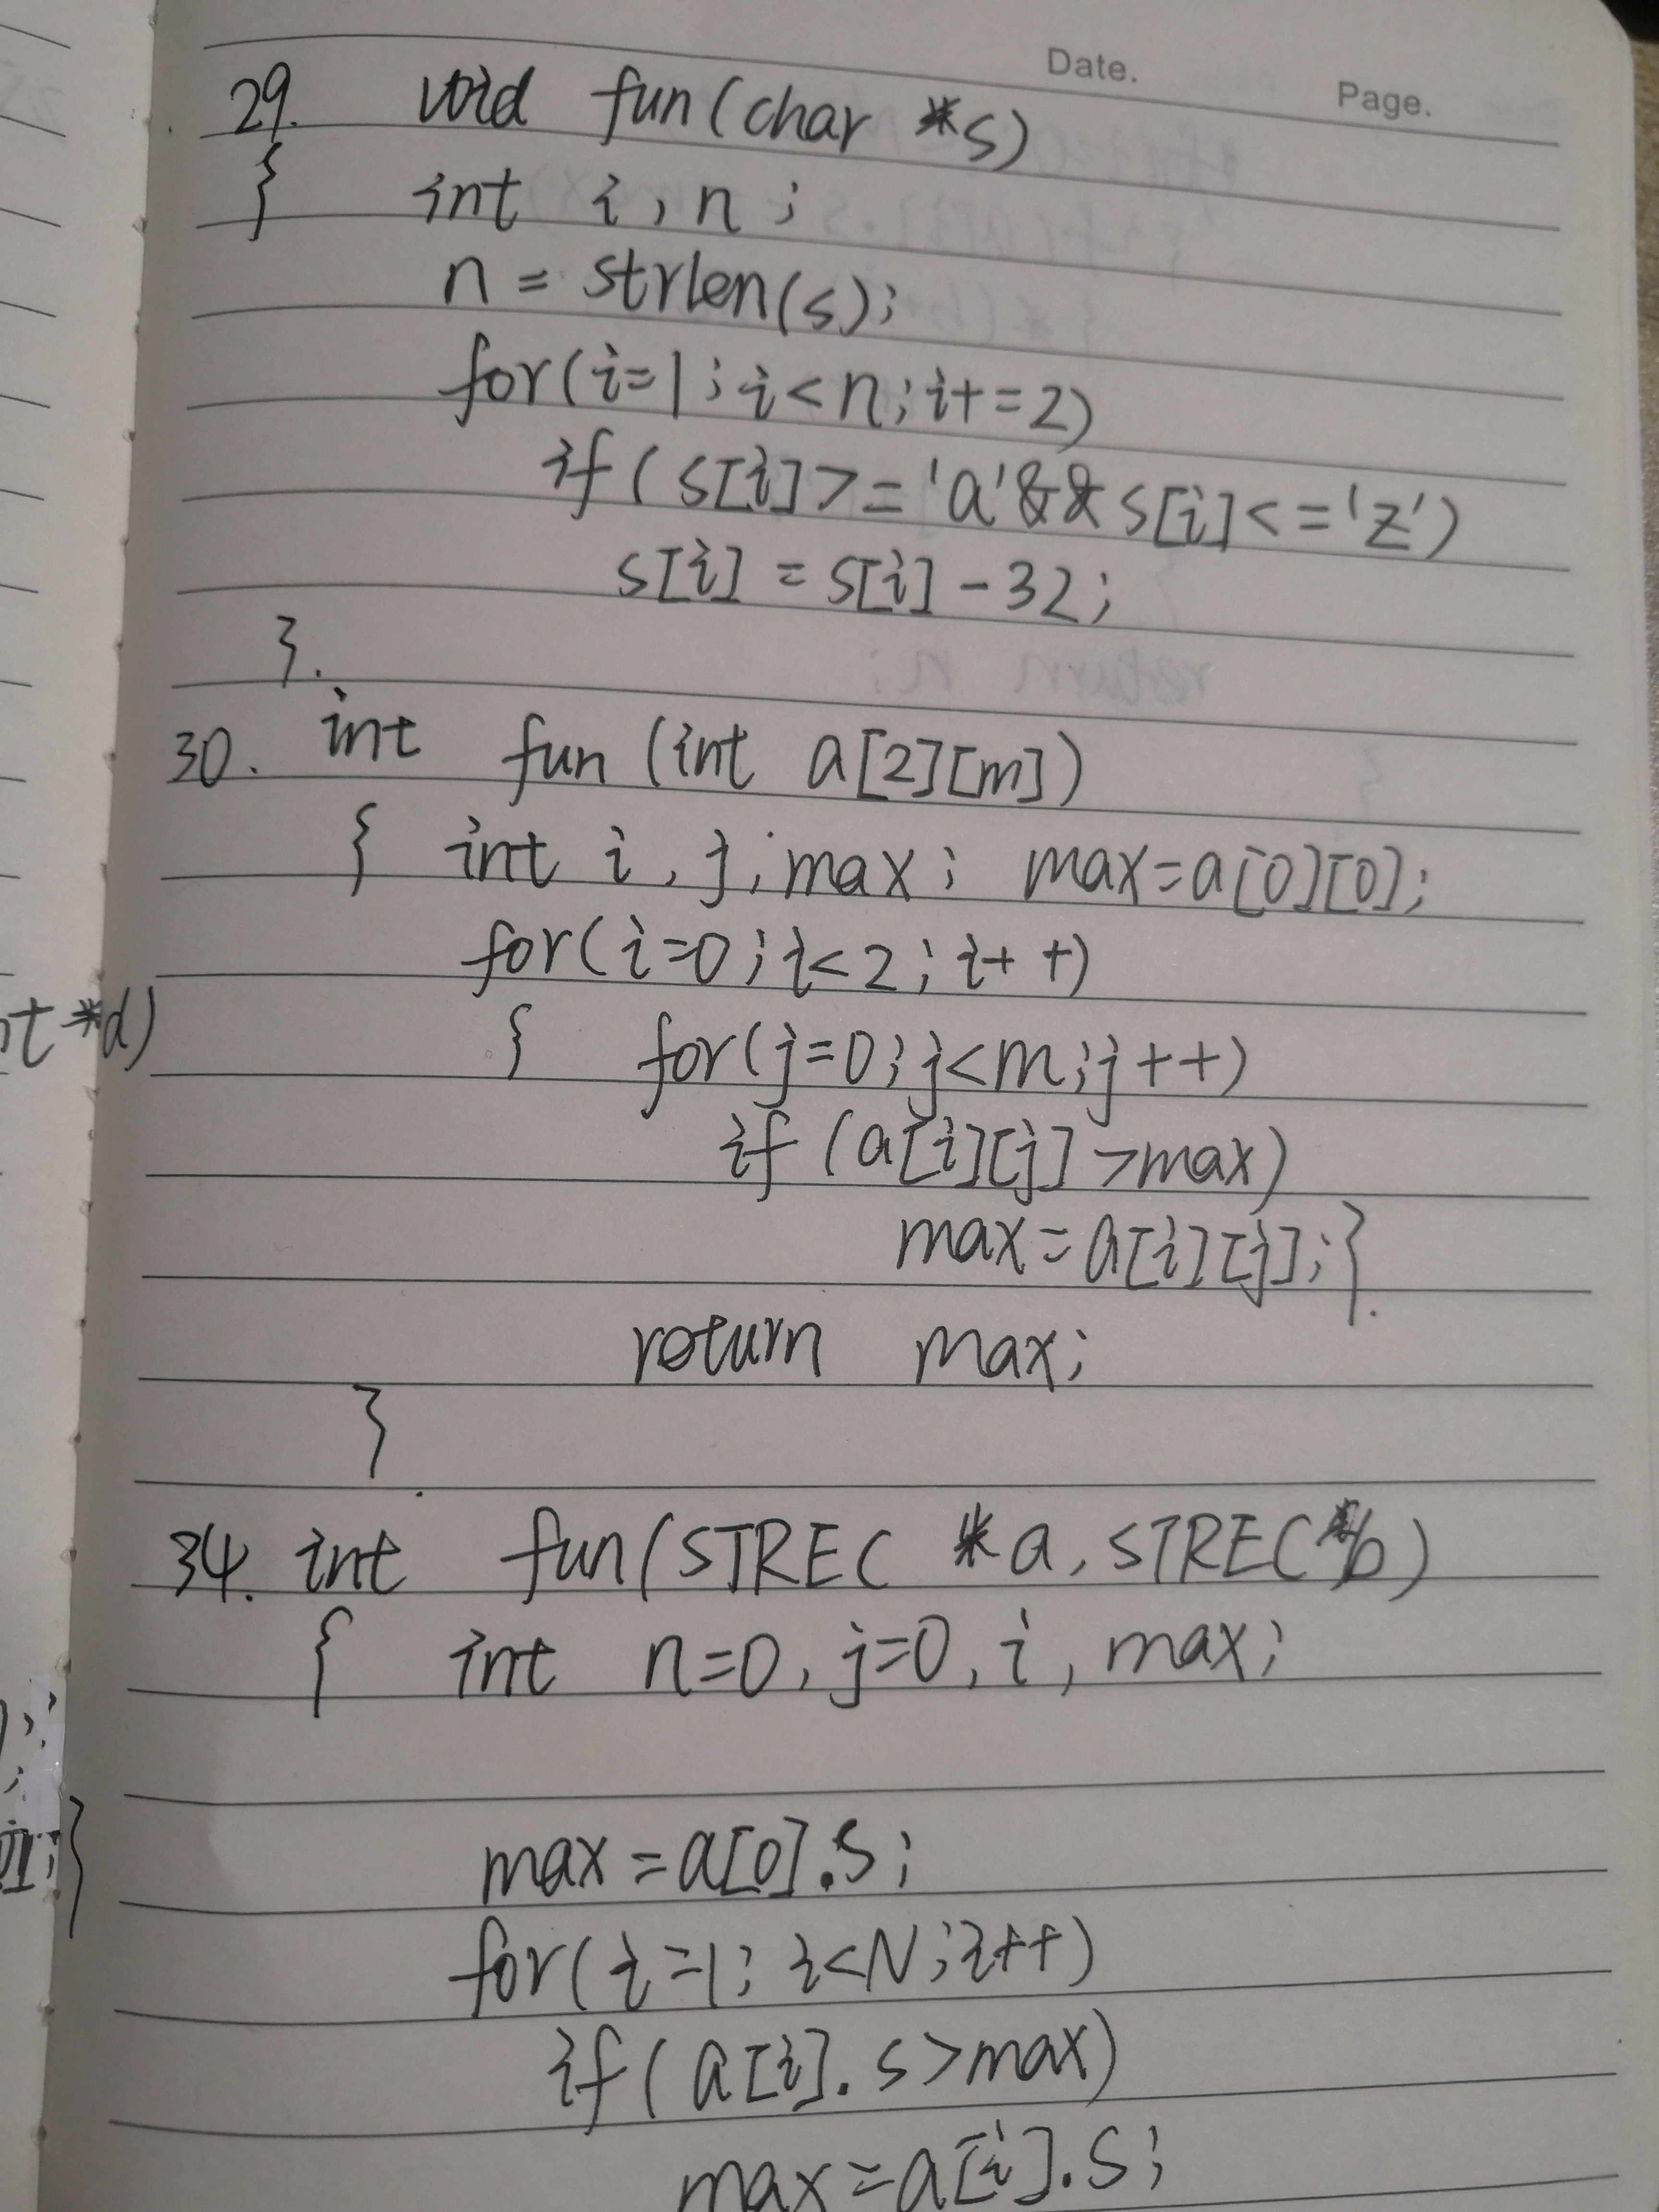 Date.
Page.
29. void fun(char *s)
{ int i, n;
n = strlen(s);
for(i=1; i<n; i+=2)
if(s[i]>='a'&&s[i]<='z')
s[i] = s[i]-32;
}.
30. int fun (int a[2][m])
{ int i, j, max; max=a[0][0];
for(i=0; i<2; i++)
{ for(j=0; j<m; j++)
if (a[i][j]>max)
max=a[i][j];}.
return max;
}
34. int fun(STREC *a, STREC *b)
{ int n=0, j=0, i, max;
max=a[0].s;
for(i=1; i<N; i++)
if(a[i].s>max)
max=a[i].s;
*d)